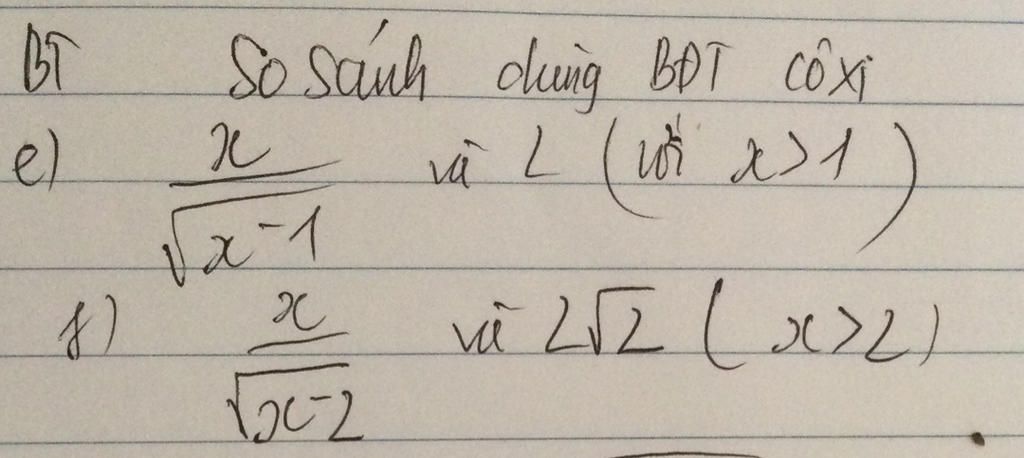 BT So sánh dùng BĐT côxi
e) x/√(x-1) và 2 (với x>1)
f) x/√(x-2) và 2√2 (x>2)